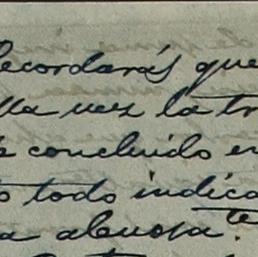 ecordarás que
lla vez la tr
e concluido en
o todo indica
a alevosa. te